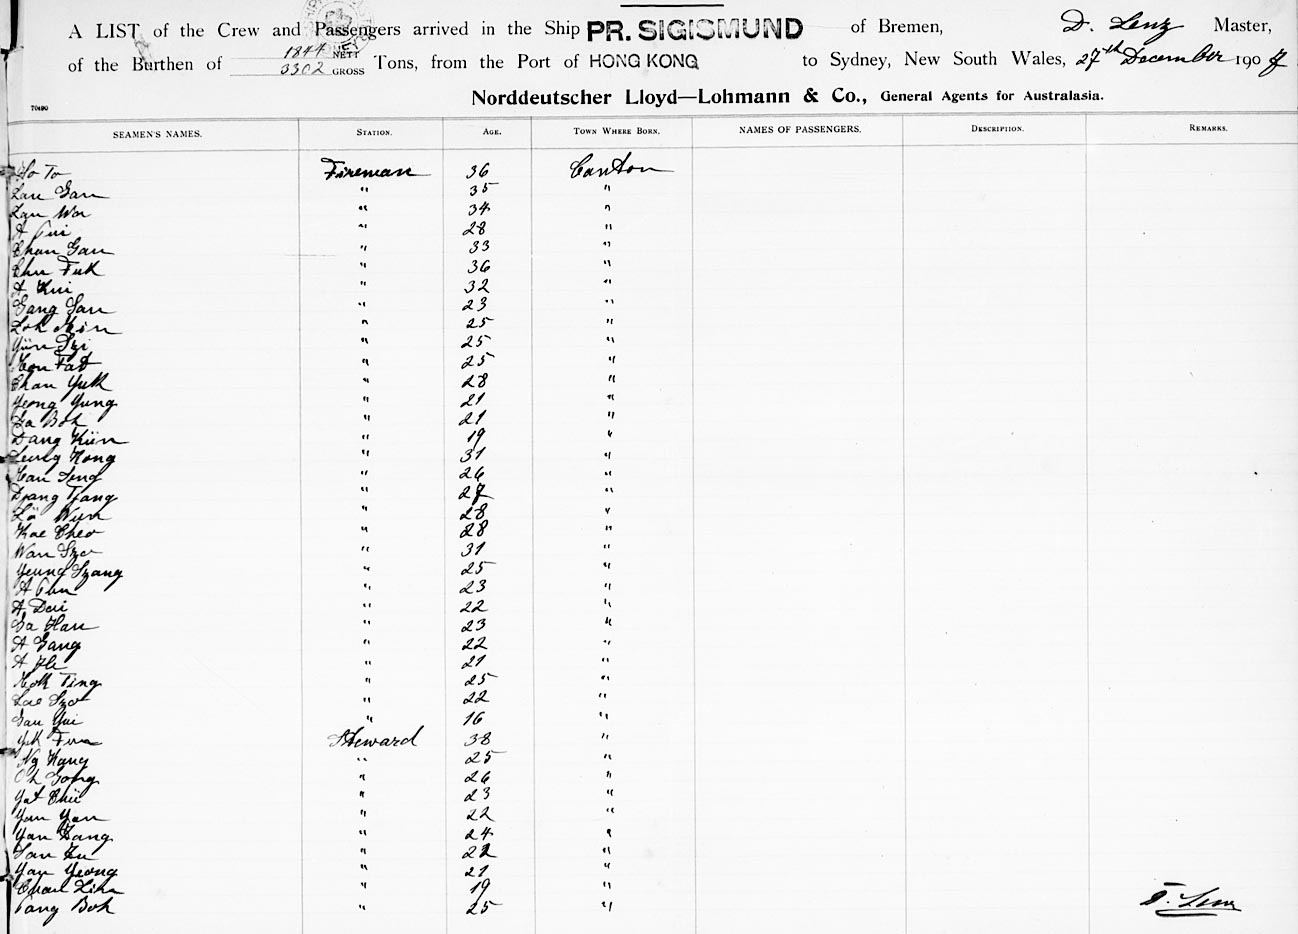 A LIST of the Crew and Passengers arrived in the Ship PR. SIGISMUND of Bremen, D. Lenz Master,
of the Burthen of 1844 NETT 3302 GROSS Tons, from the Port of HONG KONG to Sydney, New South Wales, 27th December 1907
70490
Norddeutscher Lloyd—Lohmann & Co., General Agents for Australasia.
SEAMEN'S NAMES. STATION. AGE. TOWN WHERE BORN. NAMES OF PASSENGERS. DESCRIPTION. REMARKS.
Ho To Fireman 36 Canton
Lau Gan " 35 "
Lau Wa " 34 "
A " 28 "
Chan Gau " 33 "
Chu Fuk " 36 "
A Kui " 32 "
Gang San " 23 "
Loh " 25 "
Yün Szi " 25 "
Fat " 25 "
Chan Yuk " 28 "
Yeong Yung " 21 "
Sa Boh " 21 "
Dang Kün " 19 "
Leung Kong " 31 "
" 26 "
Tjang " 27 "
Lö Wun " 28 "
Kae Cheo " 28 "
Wan Szo " 31 "
Yeung Szang " 25 "
A " 23 "
A Dai " 22 "
Sa Hau " 23 "
A Gang " 22 "
A " 21 "
Ting " 25 "
Lae Szo " 22 "
Gau Yui " 16 "
Steward 38 "
Ng Kang " 25 "
Gong " 26 "
Yat Chü " 23 "
Yau Yan " 22 "
Yau " 24 "
" 22 "
Yau Yeong " 21 "
" 19 "
Tang Boh " 25 "
D. Lenz